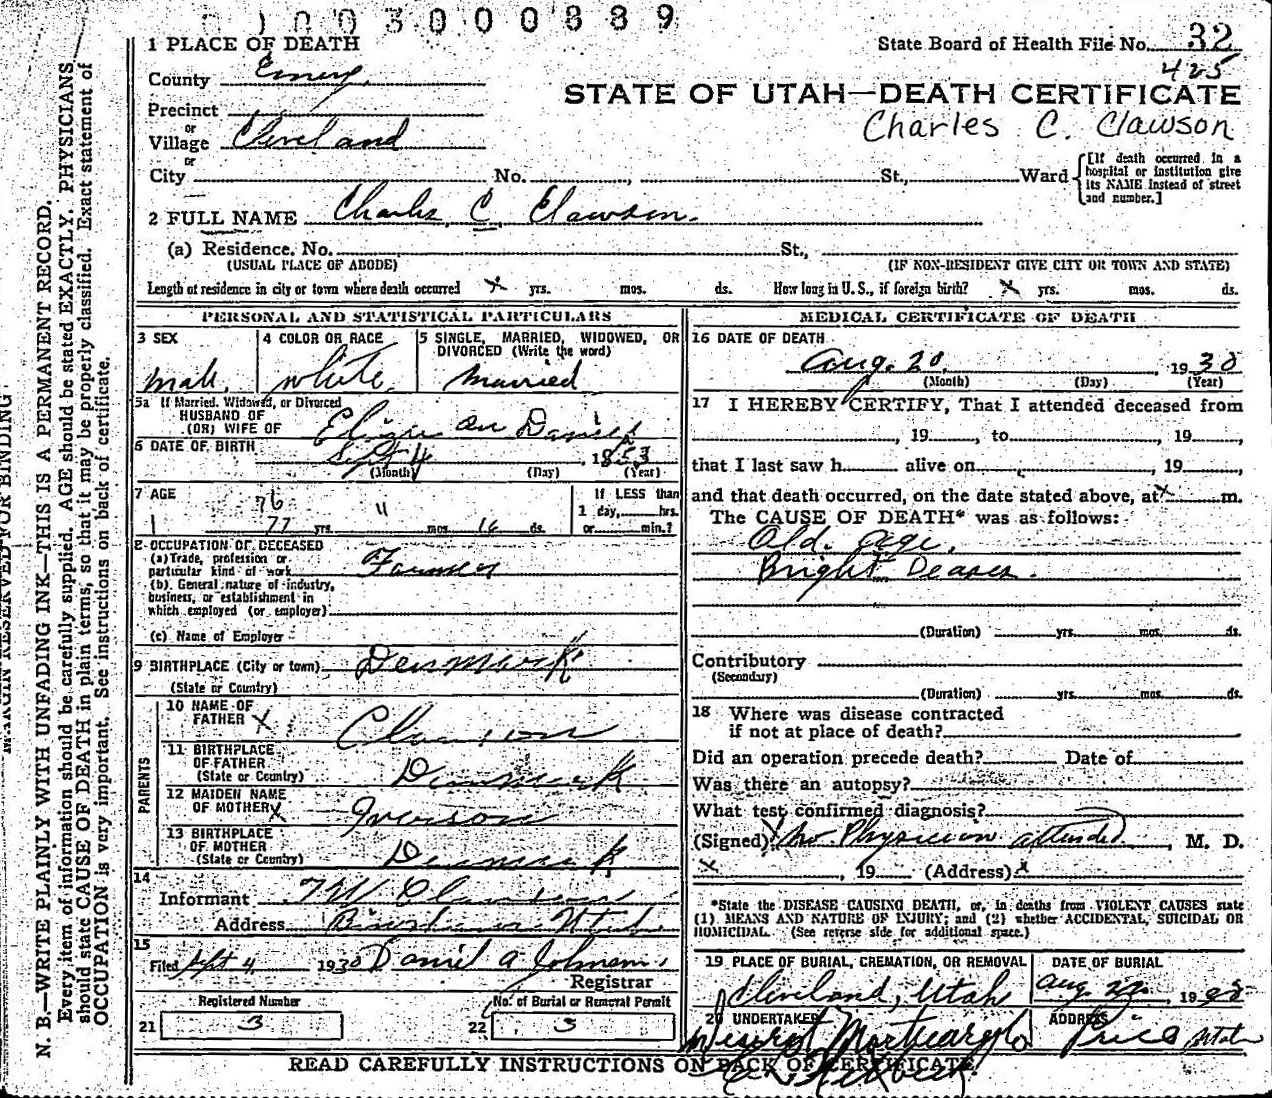 1003000889
1 PLACE OF DEATH
State Board of Health File No. 32
425
County Emery
STATE OF UTAH—DEATH CERTIFICATE
Precinct
or
Village Cleveland
Charles C. Clawson
or
City No. , St., Ward
[If death occurred in a hospital or institution give its NAME instead of street and number.]
2 FULL NAME Charles C. Clawson.
(a) Residence. No. St.,
(USUAL PLACE OF ABODE) (IF NON-RESIDENT GIVE CITY OR TOWN AND STATE)
Length of residence in city or town where death occurred x yrs. mos. ds. How long in U. S., if foreign birth? x yrs. mos. ds.
PERSONAL AND STATISTICAL PARTICULARS
3 SEX
Male.
4 COLOR OR RACE
White.
5 SINGLE, MARRIED, WIDOWED, OR DIVORCED (Write the word)
Married
5a If Married, Widowed, or Divorced
HUSBAND OF
(OR) WIFE OF an Daniels
6 DATE OF BIRTH Sept 4, 1853
(Month) (Day) (Year)
7 AGE
76 11
77 yrs. mos. 16 ds.
If LESS than
1 day, hrs.
or min.?
8 OCCUPATION OF DECEASED
(a) Trade, profession or
particular kind of work Farmer
(b) General nature of industry,
business, or establishment in
which employed (or employer)
(c) Name of Employer
9 BIRTHPLACE (City or town) Denmark
(State or Country)
PARENTS
10 NAME OF
FATHER X Clawson
11 BIRTHPLACE
OF FATHER
(State or Country) Denmark
12 MAIDEN NAME
OF MOTHER X Iverson
13 BIRTHPLACE
OF MOTHER
(State or Country) Denmark
14
Informant Clawson
Address Utah
15
Filed Sept 4 1930 Daniel A Johnson
Registrar
Registered Number
21 3
No. of Burial or Removal Permit
22 3
MEDICAL CERTIFICATE OF DEATH
16 DATE OF DEATH
Aug. 20, 1930
(Month) (Day) (Year)
17 I HEREBY CERTIFY, That I attended deceased from
, 19 , to , 19 ,
that I last saw h alive on , 19 ,
and that death occurred, on the date stated above, at x m.
The CAUSE OF DEATH* was as follows:
Old age.
Bright Deases.
(Duration) yrs. mos. ds.
Contributory
(Secondary)
(Duration) yrs. mos. ds.
18 Where was disease contracted
if not at place of death?
Did an operation precede death? Date of
Was there an autopsy?
What test confirmed diagnosis?
(Signed) X No Physician attended, M. D.
x , 19 (Address) x
*State the DISEASE CAUSING DEATH, or, in deaths from VIOLENT CAUSES state
(1) MEANS AND NATURE OF INJURY; and (2) whether ACCIDENTAL, SUICIDAL OR
HOMICIDAL. (See reverse side for additional space.)
19 PLACE OF BURIAL, CREMATION, OR REMOVAL
Cleveland, Utah
DATE OF BURIAL
Aug 22, 19
20 UNDERTAKER
Deseret Mortuary Co
ADDRESS
Price Utah
READ CAREFULLY INSTRUCTIONS ON BACK OF CERTIFICATE
MARGIN RESERVED FOR BINDING
N. B.—WRITE PLAINLY WITH UNFADING INK—THIS IS A PERMANENT RECORD.
Every item of information should be carefully supplied. AGE should be stated EXACTLY. PHYSICIANS
should state CAUSE OF DEATH in plain terms, so that it may be properly classified. Exact statement of
OCCUPATION is very important. See instructions on back of certificate.